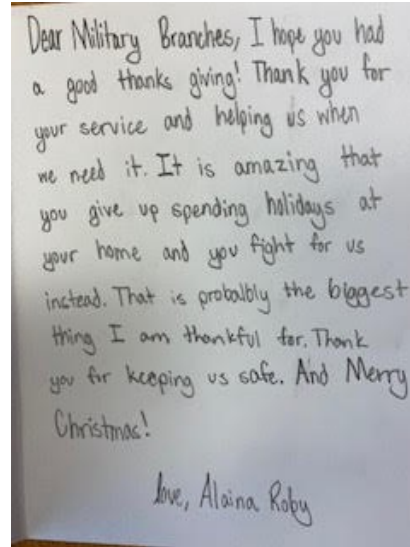 Dear Military Branches, I hope you had
a good thanks giving! Thank you for
your service and helping us when
we need it. It is amazing that
you give up spending holidays at
your home and you fight for us
instead. That is probalbly the biggest
thing I am thankful for. Thank
you for keeping us safe. And Merry
Christmas!
love, Alaina Roby